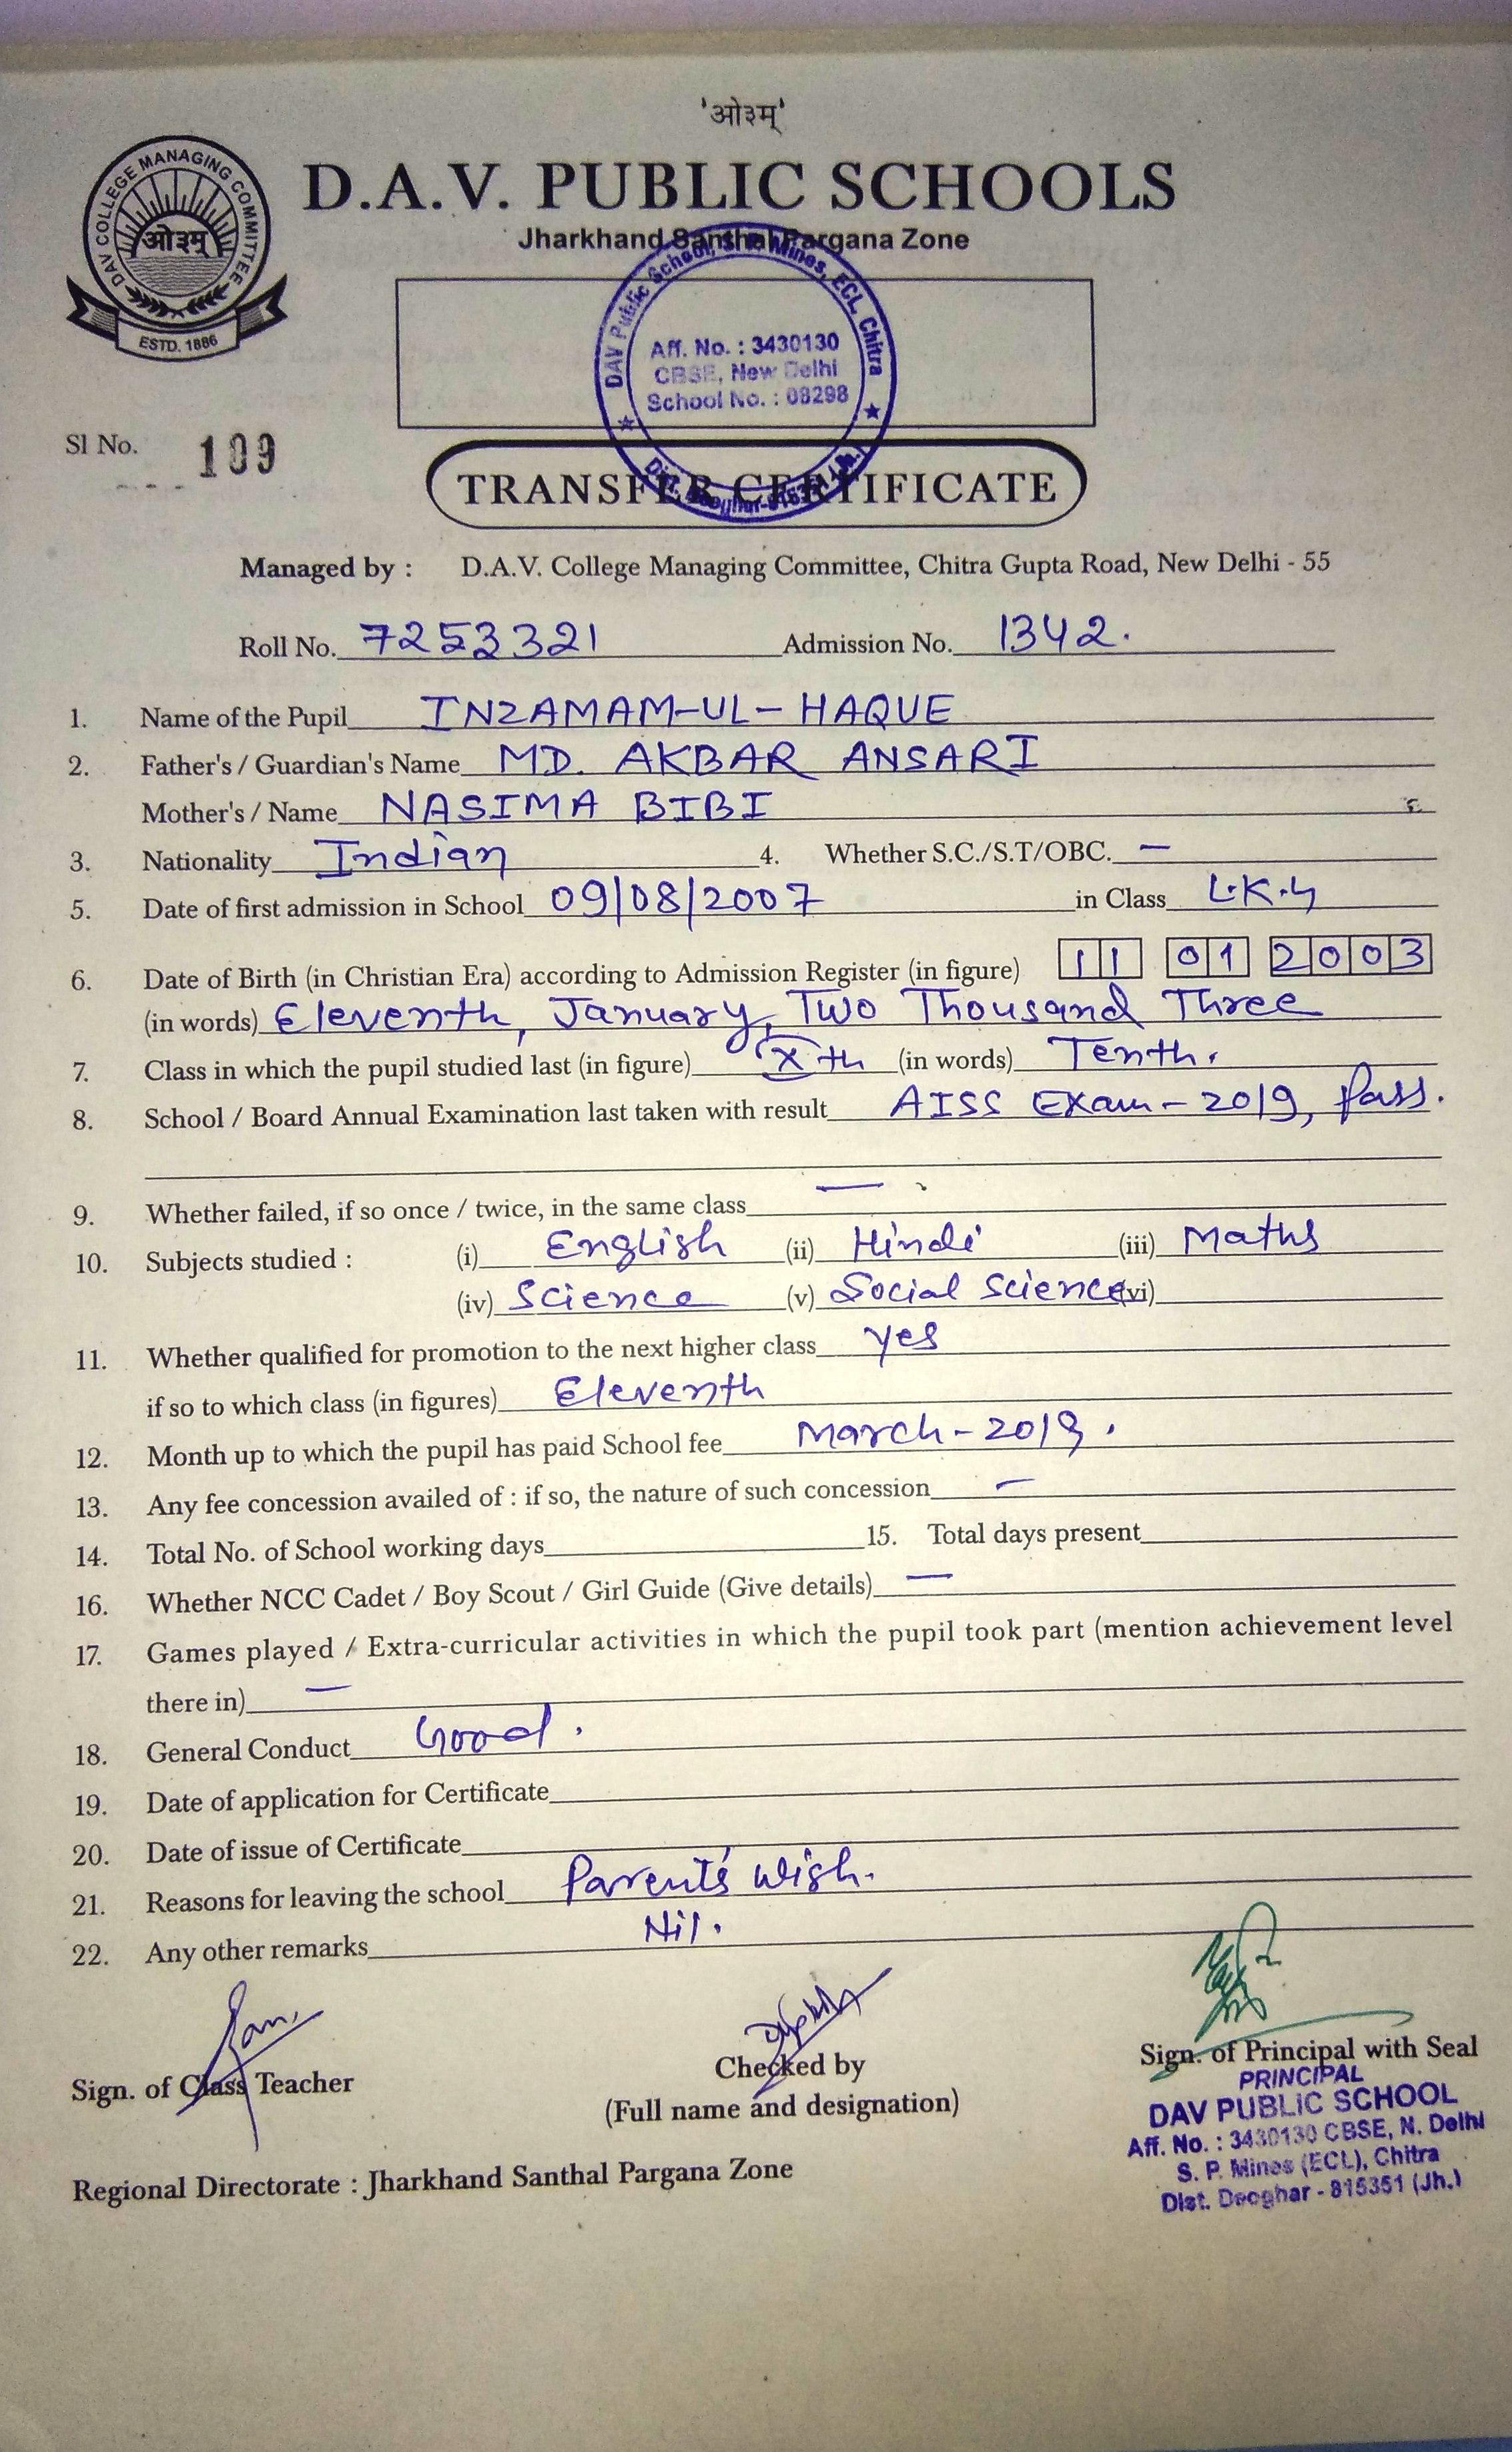 'ओ३म्'
DAV COLLEGE MANAGING COMMITTEE
ओ३म्
ESTD. 1886
D.A.V. PUBLIC SCHOOLS
Jharkhand Santhal Pargana Zone
DAV Public School, S.P. Mines, ECL, Chitra
Aff. No. : 3430130
CBSE, New Delhi
School No. : 08298
Sl No. 109
TRANSFER CERTIFICATE
Managed by : D.A.V. College Managing Committee, Chitra Gupta Road, New Delhi - 55
Roll No. 7253321 Admission No. 1342.
1. Name of the Pupil INZAMAM-UL-HAQUE
2. Father's / Guardian's Name MD. AKBAR ANSARI
Mother's / Name NASIMA BIBI
3. Nationality Indian 4. Whether S.C./S.T/OBC. —
5. Date of first admission in School 09/08/2007 in Class L.K.G
6. Date of Birth (in Christian Era) according to Admission Register (in figure) 11 01 2003
(in words) Eleventh, January, Two Thousand Three
7. Class in which the pupil studied last (in figure) Xth (in words) Tenth.
8. School / Board Annual Examination last taken with result AISS Exam-2019, Pass.
9. Whether failed, if so once / twice, in the same class —
10. Subjects studied : (i) English (ii) Hindi (iii) Maths
(iv) Science (v) Social Science (vi)
11. Whether qualified for promotion to the next higher class yes
if so to which class (in figures) Eleventh
12. Month up to which the pupil has paid School fee March-2019.
13. Any fee concession availed of : if so, the nature of such concession —
14. Total No. of School working days 15. Total days present
16. Whether NCC Cadet / Boy Scout / Girl Guide (Give details) —
17. Games played / Extra-curricular activities in which the pupil took part (mention achievement level
there in) —
18. General Conduct Good.
19. Date of application for Certificate
20. Date of issue of Certificate
21. Reasons for leaving the school Parent's wish.
22. Any other remarks Nil.
Sign. of Class Teacher
Checked by
(Full name and designation)
Sign. of Principal with Seal
PRINCIPAL
DAV PUBLIC SCHOOL
Aff. No. : 3430130 CBSE, N. Delhi
S. P. Mines (ECL), Chitra
Dist. Deoghar - 815351 (Jh.)
Regional Directorate : Jharkhand Santhal Pargana Zone